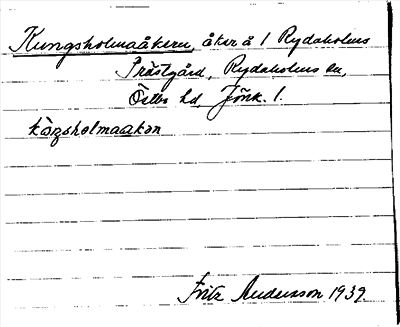 Kungsholmaåkern, åker å 1 Rydaholms
Prästgård, Rydaholms sn,
Östbo hd, Jönk. l.
kåŋsholmaakən
Fritz Andersson 1939